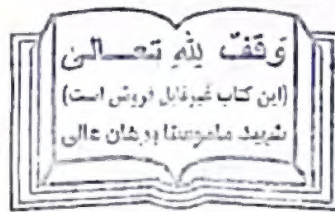 وَقفٌ لِلّٰهِ تعـــالیٰ
(این کتاب غیرقابل فروش است)
شهید ماموستا برهان عالی